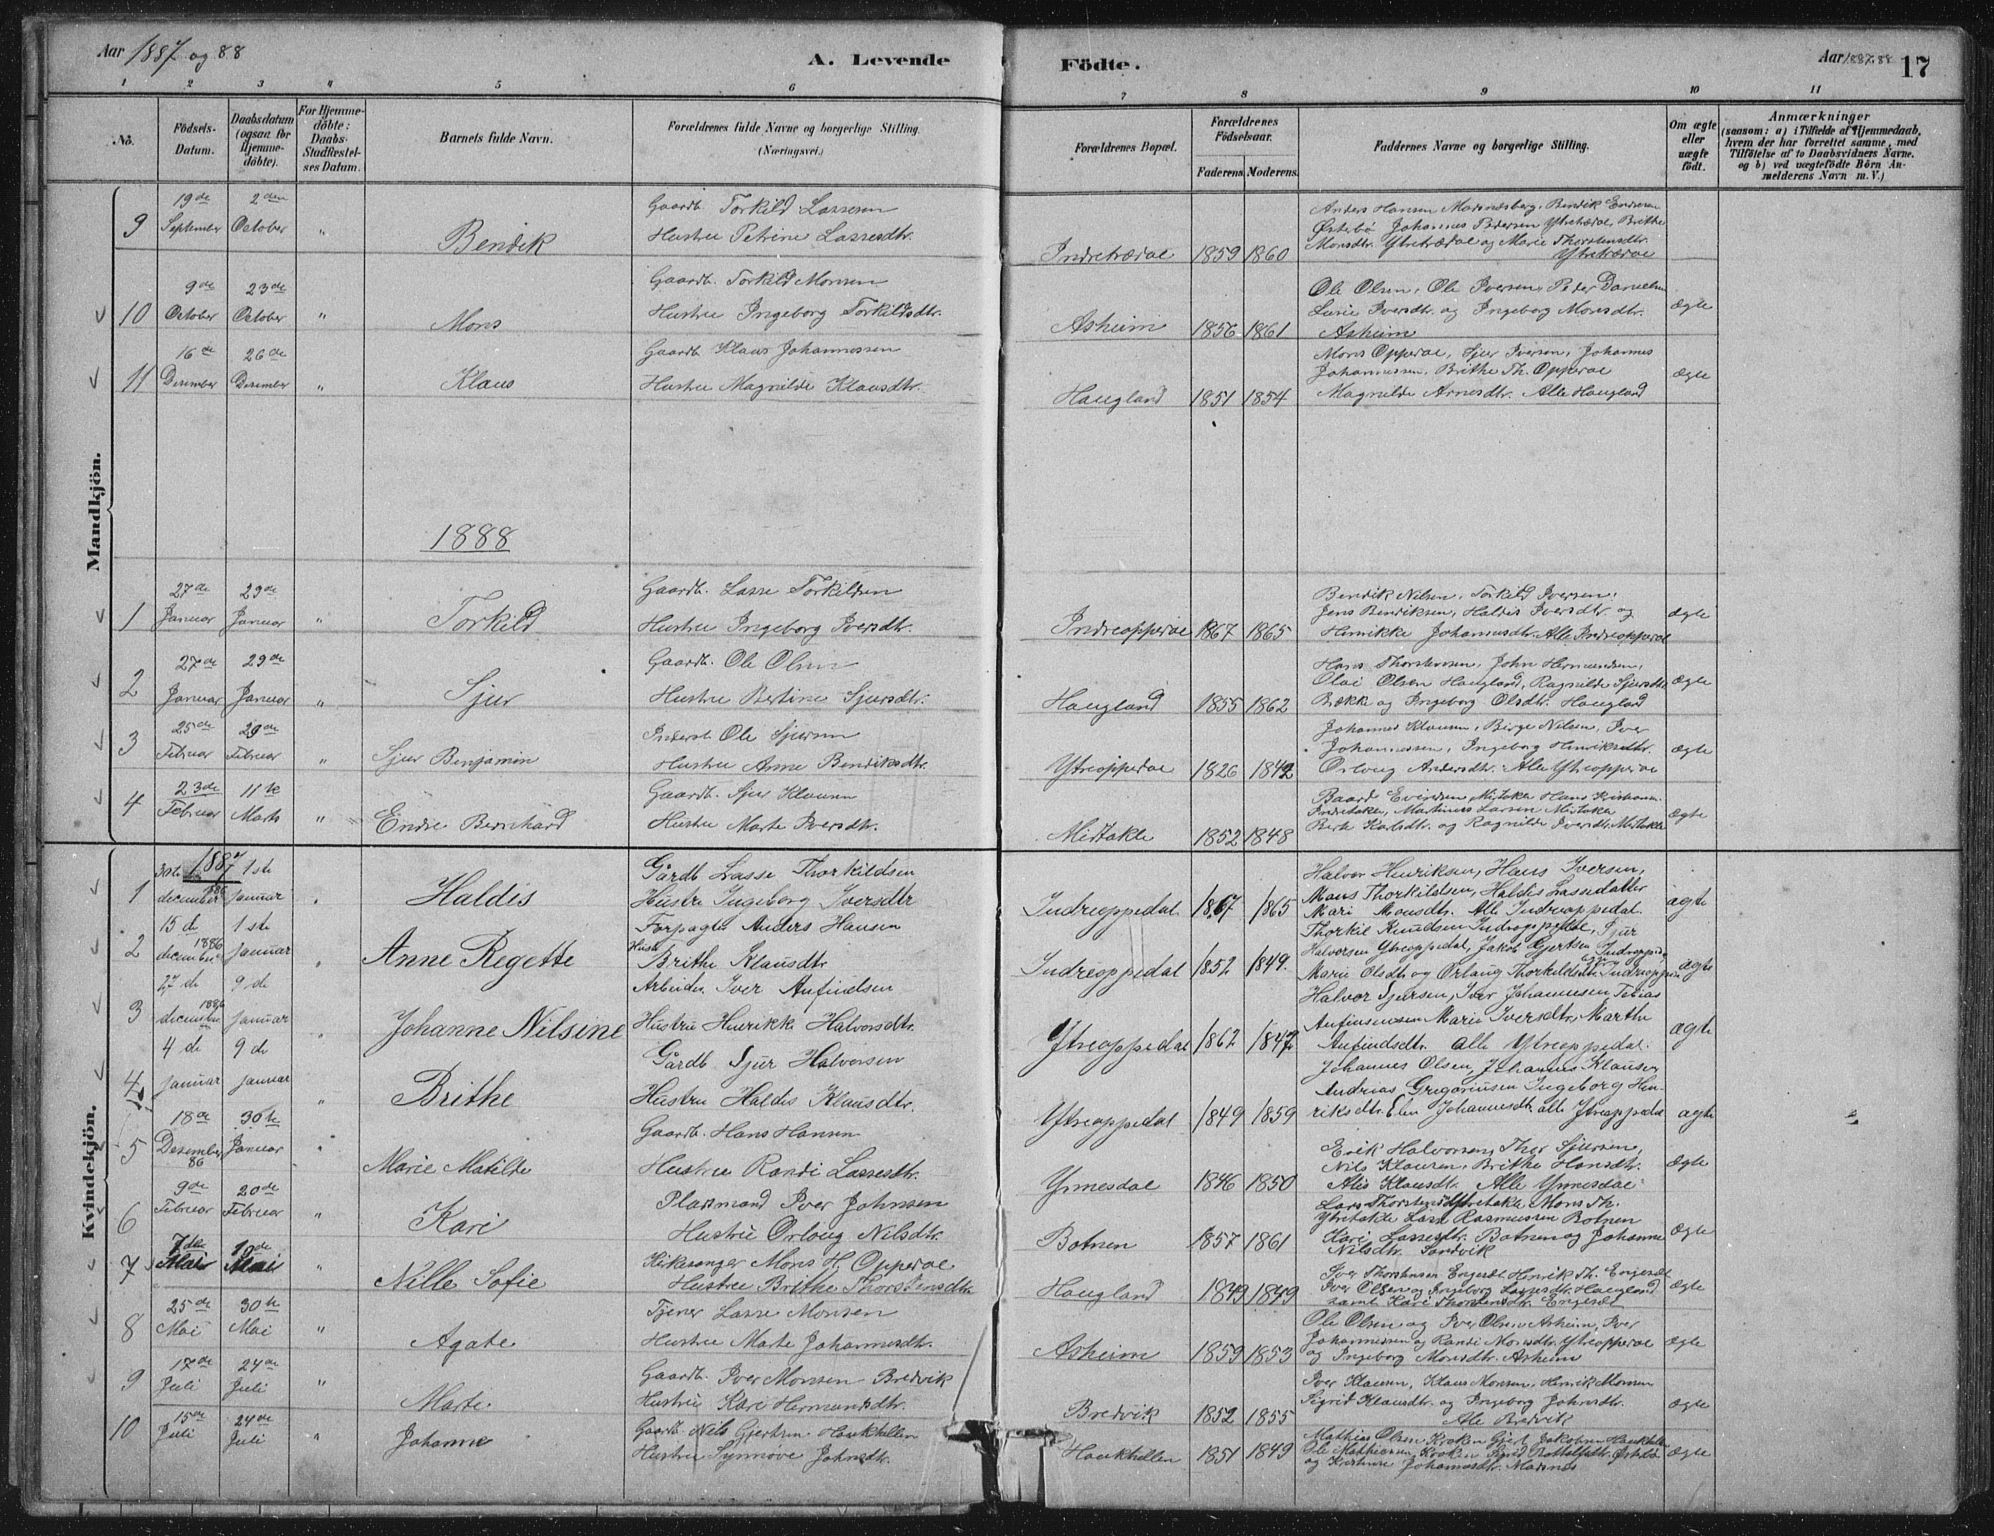 Aar 1887 og 88
A. Levende
Födte.
Aar 1887.88
17
1 2 3 4 5 6 7 8 9 10 11
No.
Födsels-Datum.
Daabsdatum (ogsaa for Hjemmedöbte).
For Hjemmedöbte: Daabs-Stadfæstelses Datum.
Barnets fulde Navn.
Forældrenes fulde Navne og borgerlige Stilling. (Næringsvei.)
Forældrenes Bopæl.
Forældrenes Födselsaar.
Faderens. Moderens.
Faddernes Navne og borgerlige Stilling.
Om ægte eller uægte födt.
Anmærkninger
(saasom: a) i Tilfælde af Hjemmedaab, hvem der har forrettet samme, med Tilföielse af to Daabsvidners Navne, og b) ved uægtefödte Börn Anmelderens Navn m. V.)
Mandkjön.
9 19de September 2den October " Bendik
Gaardb. Torkild Lassesen
Hustru Petrine Lassesdtr.
Indretrædae 1859 1860
Anders Hansen Masnesberg, Bendik Endresen
Østerbø Johannes Pedersen Ytretrædae, Brithe
Monsdtr. Ytretrædae og Marie Thorstensdtr.
Ytretrædae
10 9de October 23de October " Mons
Gaardb. Torkild Monsen
Hustru Ingeborg Torkildsdtr.
Asheim 1856 1861
Ole Olsen, Ole Iversen, Peder Danielsen
Iversdtr. og Ingeborg Monsdtr.
Asheim
ægte
11 16de Desember 26de Desember " Klaus
Gaardb. Klaus Johannessen
Hustru Magnilde Klausdtr.
Haugland 1851 1854
Mons Opperae, Sjur Iversen, Johannes
Johannessen, Brithe Th. Opperae
Magnilde Arnesdtr. Alle Haugland
ægte
1888
1 27de Januar 29de Januar " Torkild
Gaardb. Lasse Torkildsen
Hustru Ingeborg Iversdtr.
Indreopperae 1867 1865
Bendik Nilsen, Torkild Iversen,
Jens Bendiksen, Haldis Iversdtr. og
Henrikke Johannesdtr. Alle Indreopperae
ægte
2 27de Januar 29de Januar " Sjur
Gaardb. Ole Olsen
Hustru Bertine Sjursdtr.
Haugland 1855 1862
Hans Thorstensen, John Hermundsen,
Olai Olsen Haugland, Ragnilde Sjursdtr.
Bække og Ingeborg Olsdtr. Haugland
ægte
3 25de Februar 29de Februar " Sjur Benjamin
Inderst. Ole Sjursen
Hustru Anne Bendiksdtr.
Ytreopperae 1826 1842
Johannes Klausen, Birge Nilsen, Iver
Johannessen, Ingeborg Henriksdtr.
Orloug Andersdtr. Alle Ytreopperae
ægte
4 23de Februar 11te Marts " Endre Bernhard
Gaardb. Sjur Klausen
Hustru Marte Iversdtr.
Mistakle 1852 1848
Baard Mistakle Hans
Martinus Larsen Mistakle
og Ragnilde Iversdtr. Mistakle
ægte
Kvindekjön.
1887
1 30te december 1886 1ste januar " Haldis
Gårdb Lasse Thorkildsen
Hustru Ingeborg Iversdtr
Indreoppedal 1867 1865
Halvor Henriksen, Hans Iversen,
Mons Thorkildsen, Haldis Lassedatter
Mari Monsdtr. Alle Indreoppedal.
ægte
2 15de december 1886 1ste januar " Anne Regette
Forpagter Anders Hansen
Hustru Brithe Klausdtr
Indreoppedal 1852 1849.
Thorkil Knudsen Indreoppedal, Sjur
Halvorsen Ytreoppedal, Jakob Gjertsen Indreoppedal
Marie Olsdtr og Orlaug Thorkildsdtr Indreoppedal
ægte
3 27de december 1886 9de januar " Johanne Nilsine
Arbeider Iver Anfindsen
Hustru Henrikke Halvorsdtr.
Ytreoppedal 1862 1847
Halvor Sjursen, Iver Johannesen Tobias
Anfinsensen Marie Iversdtr, Marthe
Anfindsdtr. Alle Ytreoppedal.
ægte
4 4de januar 9de januar " Brithe
Gårdb Sjur Halvorsen
Hustru Haldis Klausdtr.
Ytreoppedal 1849 1859
Johannes Olsen, Johannes Klausen
Andrias Gregoriusen Ingeborg Hen-
riksdtr. Elen Johannesdtr. alle Ytreoppedal
ægte
5 18de Desember 86 30te Januar " Marie Matilde
Gaardb. Hans Hansen
Hustru Randi Lassesdtr.
Ynnesdae 1846 1850
Erik Halvorsen, Thor Sjursen,
Nils Klausen, Brithe Hansdtr.
Alis Klausdtr. Alle Ynnesdae
ægte
6 9de Februar 20de Februar " Kari
Pladsmand Iver Johnsen
Hustru Orloug Nilsdtr.
Botnen 1857 1861
Lars Thorstensen Ytretakle Mons Th.
Ytretakle Lars Rasmussen Botnen
Kari Lassesdtr. Botnen og Johanne
Nilsdtr. Sandvik
ægte
7 7de Mai 10de Mai " Nille Sofie
Kirkesanger Mons H. Opperae
Hustru Brithe Thorstensdtr.
Haugland 1849 1849
Iver Thorstensen Engesæt Henrik Th. Engesæt
Iver Olsen og Ingeborg Lassesdtr. Haugland
samt Kari Thorstensdtr. Engesæt
ægte
8 25de Mai 30te Mai " Agate
Tjener Lasse Monsen
Hustru Marte Johannesdtr.
Asheim 1859 1853
Ole Olsen og Iver Olsen Asheim, Iver
Johannessen og Randi Monsdtr. Ytreopperae
og Ingeborg Monsdtr. Asheim
ægte
9 17de Juli 24de Juli " Marte
Gaardb. Iver Monsen Bredvik
Hustru Kari Hermundsdtr.
Bredvik 1852 1855
Iver Klausen, Klaus Monsen, Henrik Monsen
Sigrid Klausdtr. og Ingeborg Johnsdtr.
Alle Bredvik
ægte
10 15de Juli 24de Juli " Johanne
Gaardb. Nils Gjertsen Haukhellen
Hustru Synnøve Johnsdtr.
Haukhellen 1851 1849
Mathias Olsen Kroken Gjert Jakobsen Haukhellen
Ole Mathiesen Kroken
og Johannesdtr. Masnes
ægte